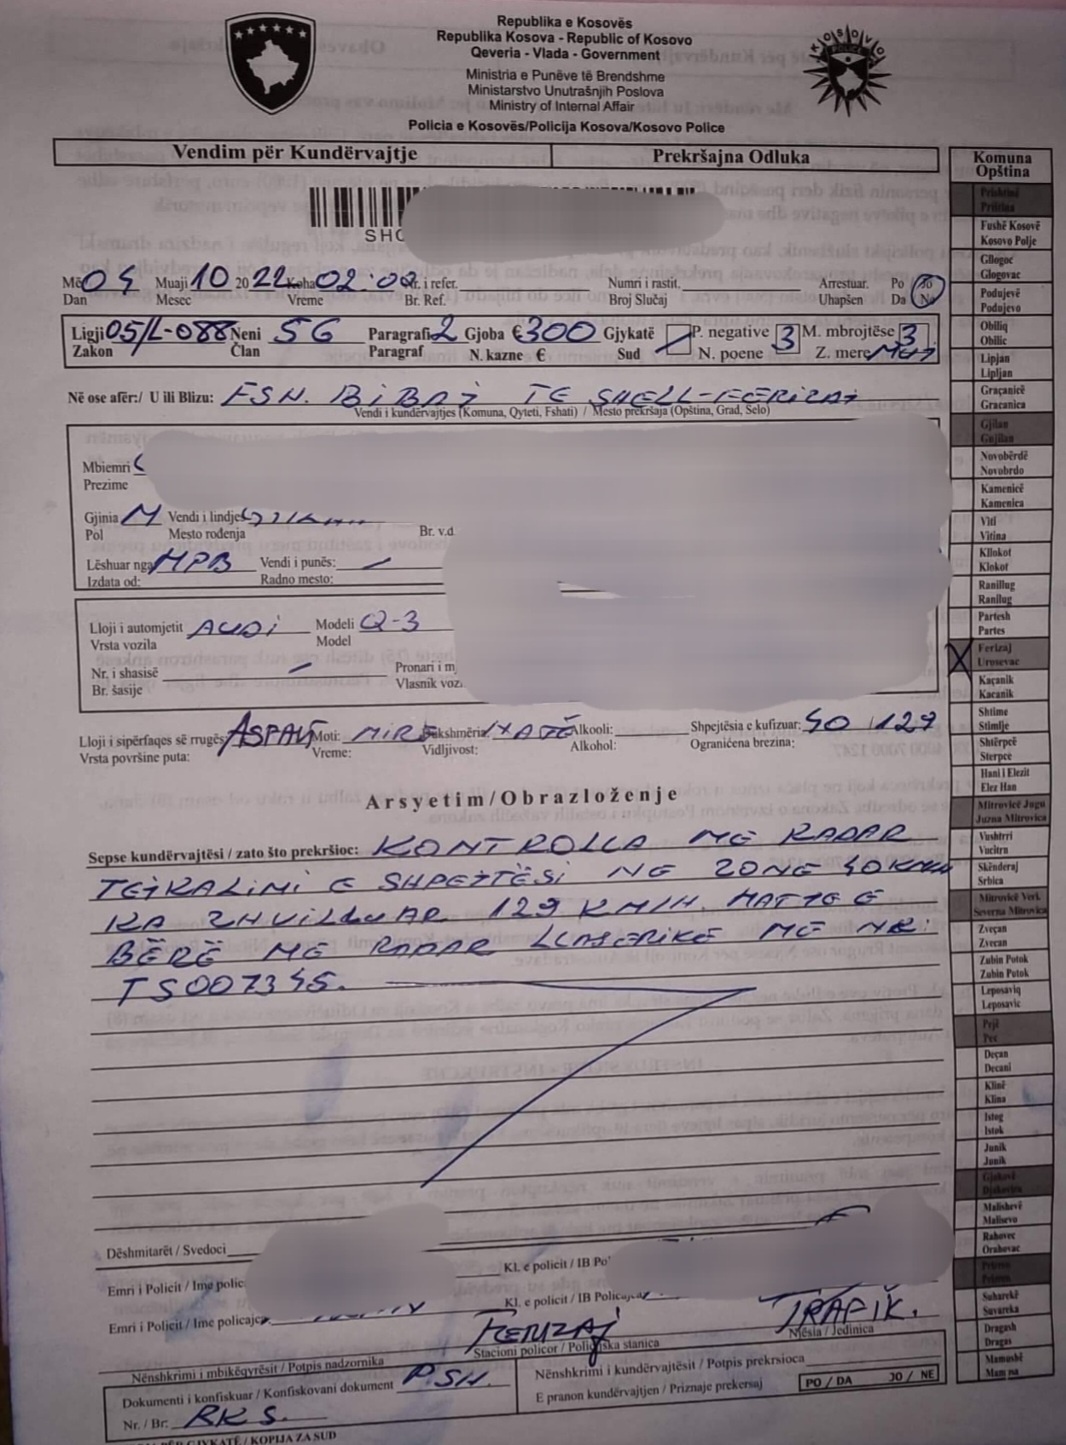 Republika e Kosovës
Republika Kosova - Republic of Kosovo
Qeveria - Vlada - Government
Ministria e Punëve të Brendshme
Ministarstvo Unutrašnjih Poslova
Ministry of Internal Affair
Policia e Kosovës/Policija Kosova/Kosovo Police
KOSOVO
POLICE
Vendim për Kundërvajtje Prekršajna Odluka
Më 04 Muaji 10 2022 Koha 02:00 Nr. i refer. Numri i rastit. Arrestuar. Po Jo
Dan Mesec Vreme Br. Ref. Broj Slučaj Uhapšen Da Ne
Ligji 05/L-088 Neni 56 Paragrafi 2 Gjoba €300 Gjykatë P. negative 3 M. mbrojtëse 3
Zakon Član Paragraf N. kazne € Sud N. poene Z. mere MUJ
Në ose afër:/ U ili Blizu: FSH. BIBAJ TE SHELL-FERIZAJ
Vendi i kundërvajtjes (Komuna, Qyteti, Fshati) / Mesto prekršaja (Opština, Grad, Selo)
Mbiemri
Prezime
Gjinia M Vendi i lindjes
Pol Mesto rođenja Br. v.d
Lëshuar nga MPB Vendi i punës:
Izdata od: Radno mesto:
Lloji i automjetit AUDI Modeli Q-3
Vrsta vozila Model
Nr. i shasisë Pronari i mj
Br. šasije Vlasnik voz.
Lloji i sipërfaqes së rrugës ASFALT Moti: MIRË Dukshmëria: NATË Alkooli: Shpejtësia e kufizuar: 40 /129
Vrsta površine puta: Vreme: Vidljivost: Alkohol: Ograničena brezina:
Arsyetim/Obrazloženje
Sepse kundërvajtësi / zato što prekršioc: KONTROLLA ME RADAR
TEJKALIMI E SHPEJTËSI NË ZONË 40 KM/H
KA ZHVILLUAR 129 KM/H. MATJE E
BËRË ME RADAR LLASERIKË ME NR:
TS007345.
Dëshmitarët / Svedoci
Emri i Policit / Ime polic Kl. e policit / IB Po
Emri i Policit / Ime policajc Kl. e policit / IB Policajca
FERIZAJ TRAFIK.
Stacioni policor / Policijska stanica Njësia / Jedinica
Nënshkrimi i mbikëqyrësit / Potpis nadzornika Nënshkrimi i kundërvajtësit / Potpis prekrsioca
Dokumenti i konfiskuar / Konfiskovani dokument P.SH. E pranon kundërvajtjen / Priznaje prekersaj PO / DA JO / NE
Nr. / Br: RKS.
KOPIJA ZA SUD
Komuna
Opština
Prishtinë
Priština
Fushë Kosovë
Kosovo Polje
Gllogoc
Glogovac
Podujevë
Podujevo
Obiliq
Obilic
Lipjan
Lipljan
Graçanicë
Gracanica
Gjilan
Gnjilan
Novobërdë
Novobrdo
Kamenicë
Kamenica
Viti
Vitina
Kllokot
Klokot
Ranillug
Ranilug
Partesh
Partes
Ferizaj
Urosevac
Kaçanik
Kacanik
Shtime
Stimlje
Shtërpcë
Sterpce
Hani i Elezit
Elez Han
Mitrovicë Jugu
Juzna Mitrovica
Vushtrri
Vucitrn
Skënderaj
Srbica
Mitrovicë Veri
Severna Mitrovica
Zveçan
Zvecan
Zubin Potok
Zubin Potok
Leposaviq
Leposavic
Pejë
Pec
Deçan
Decani
Klinë
Klina
Istog
Istok
Junik
Junik
Gjakovë
Djakovica
Malishevë
Malisevo
Rahovec
Orahovac
Prizren
Prizren
Suharekë
Suvareka
Dragash
Dragas
Mamushë
Mamusa